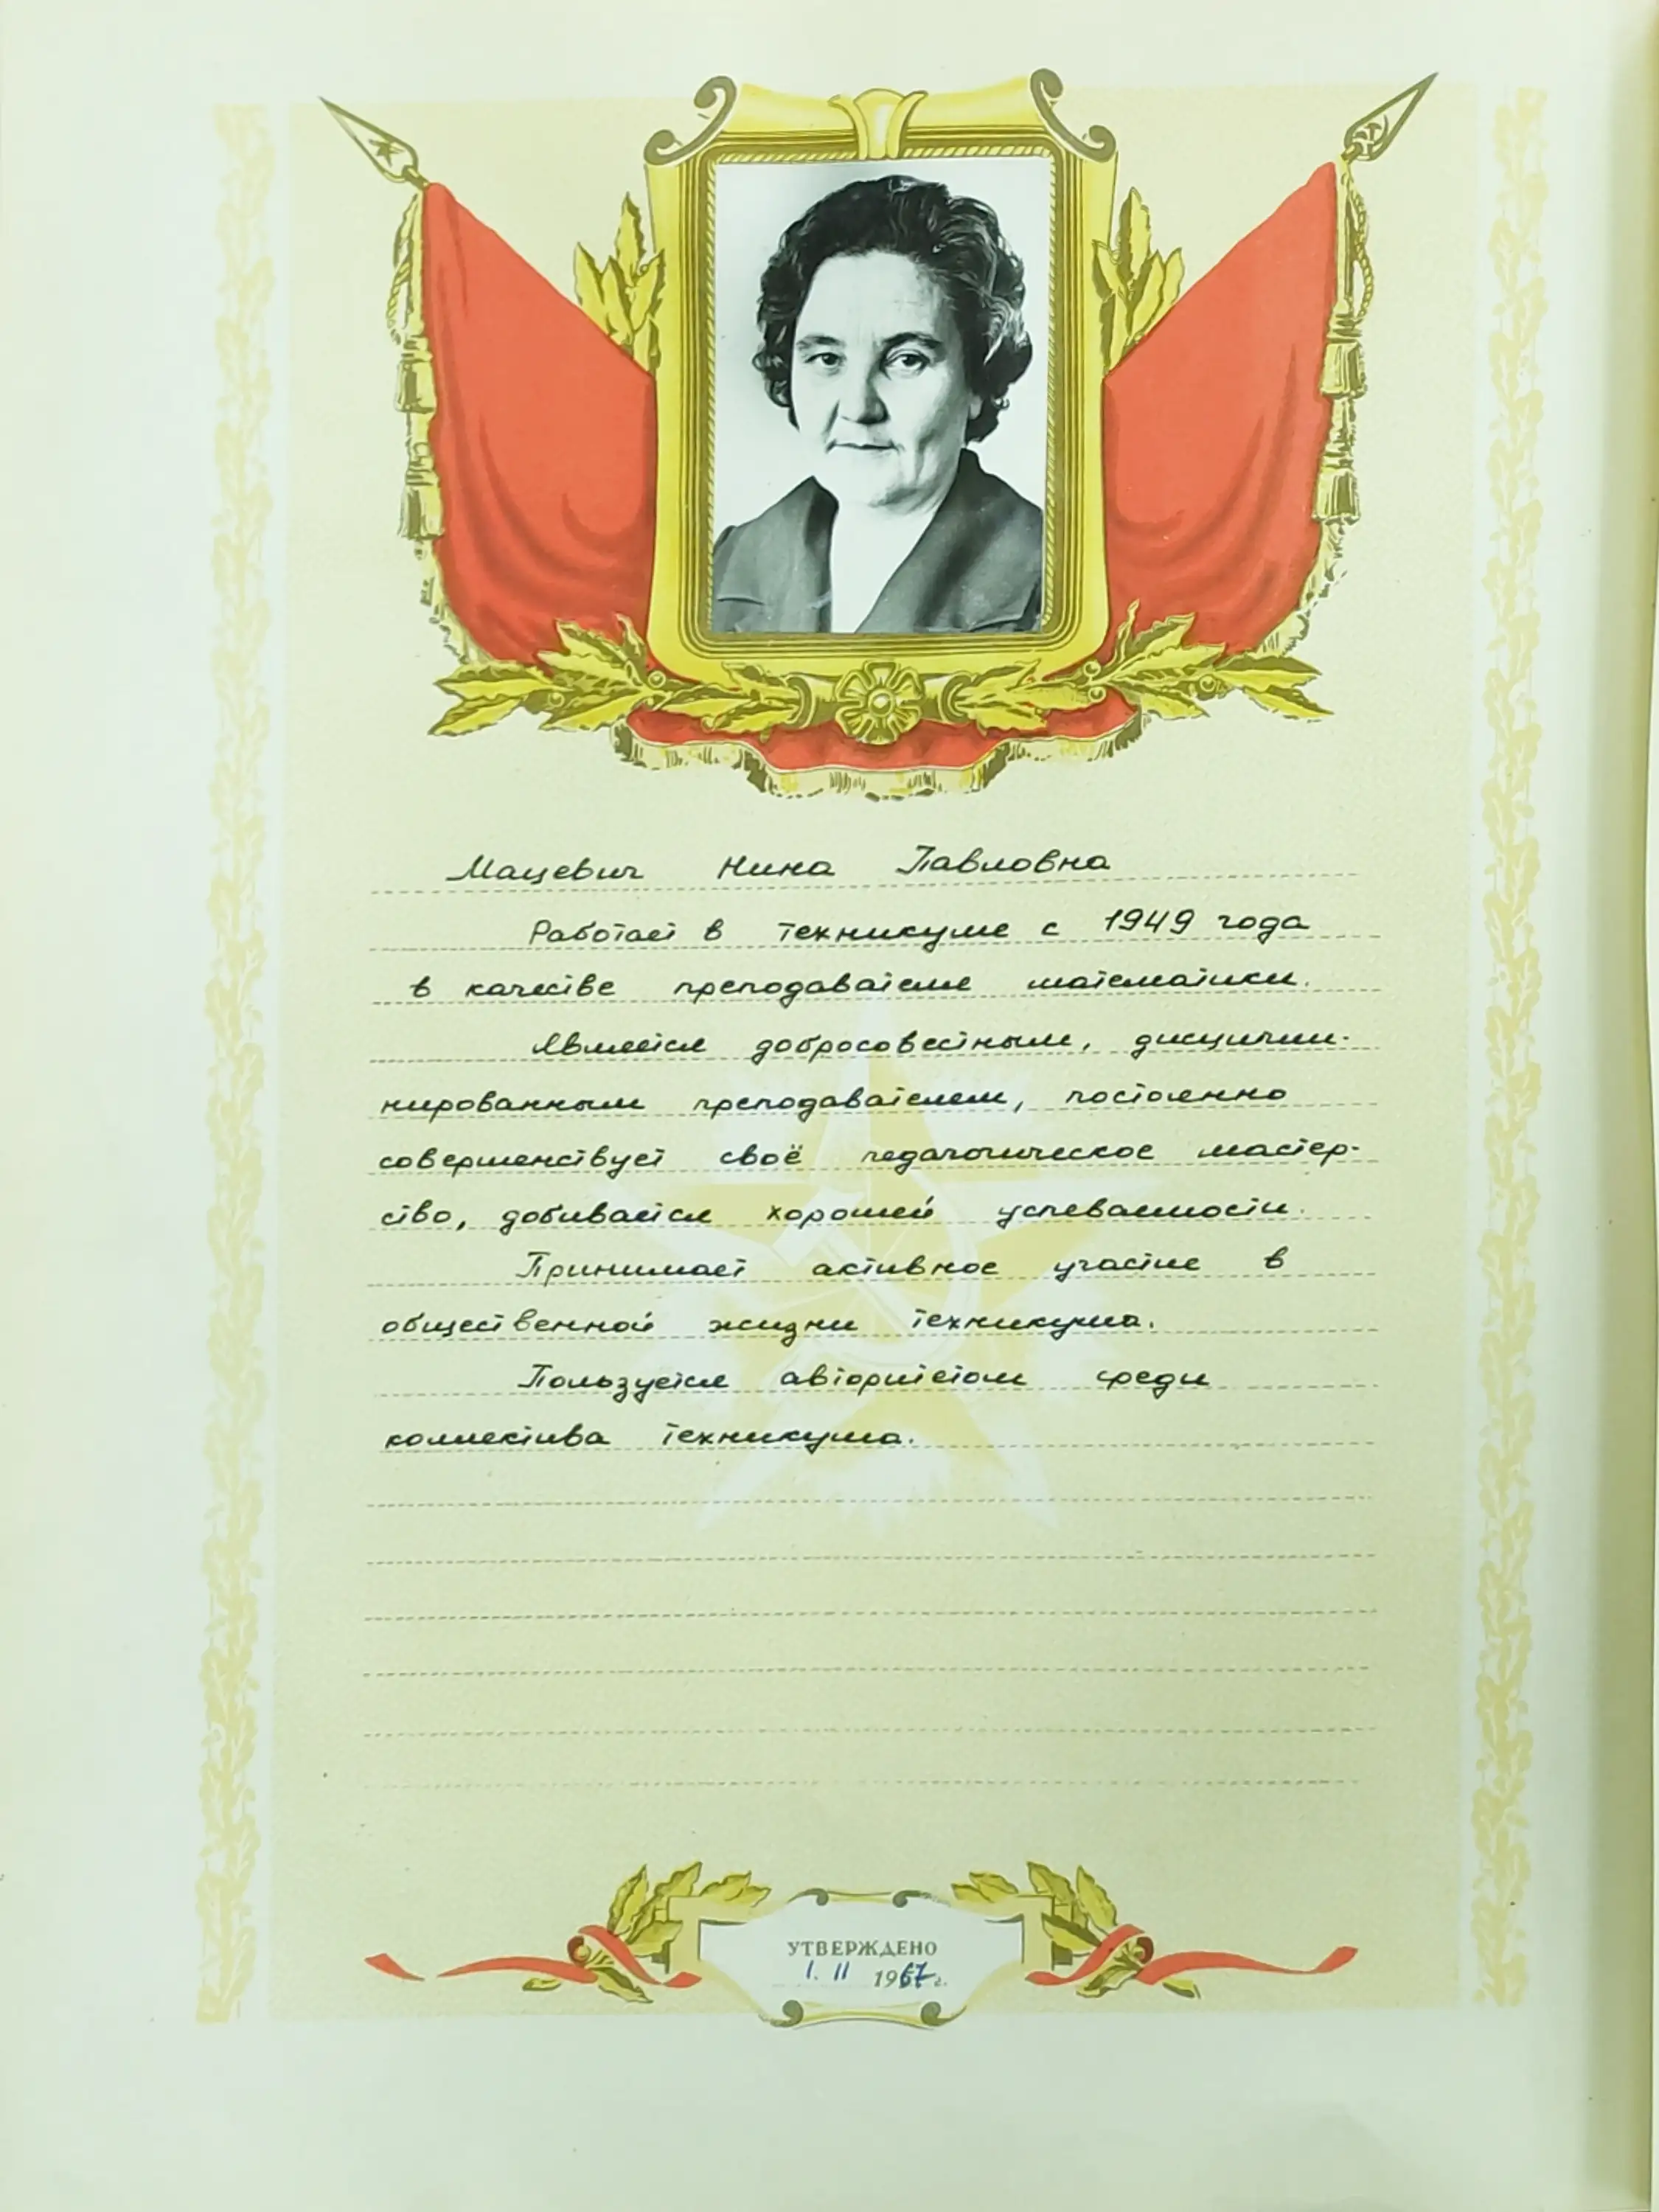 Мацевич Нина Павловна
Работает в техникуме с 1949 года
в качестве преподавателя математики.
Является добросовестным, дисципли-
нированным преподавателем, постоянно
совершенствует своё педагогическое мастер-
ство, добивается хорошей успеваемости.
Принимает активное участие в
общественной жизни техникума.
Пользуется авторитетом среди
коллектива техникума.
УТВЕРЖДЕНО
1. II 1967 г.